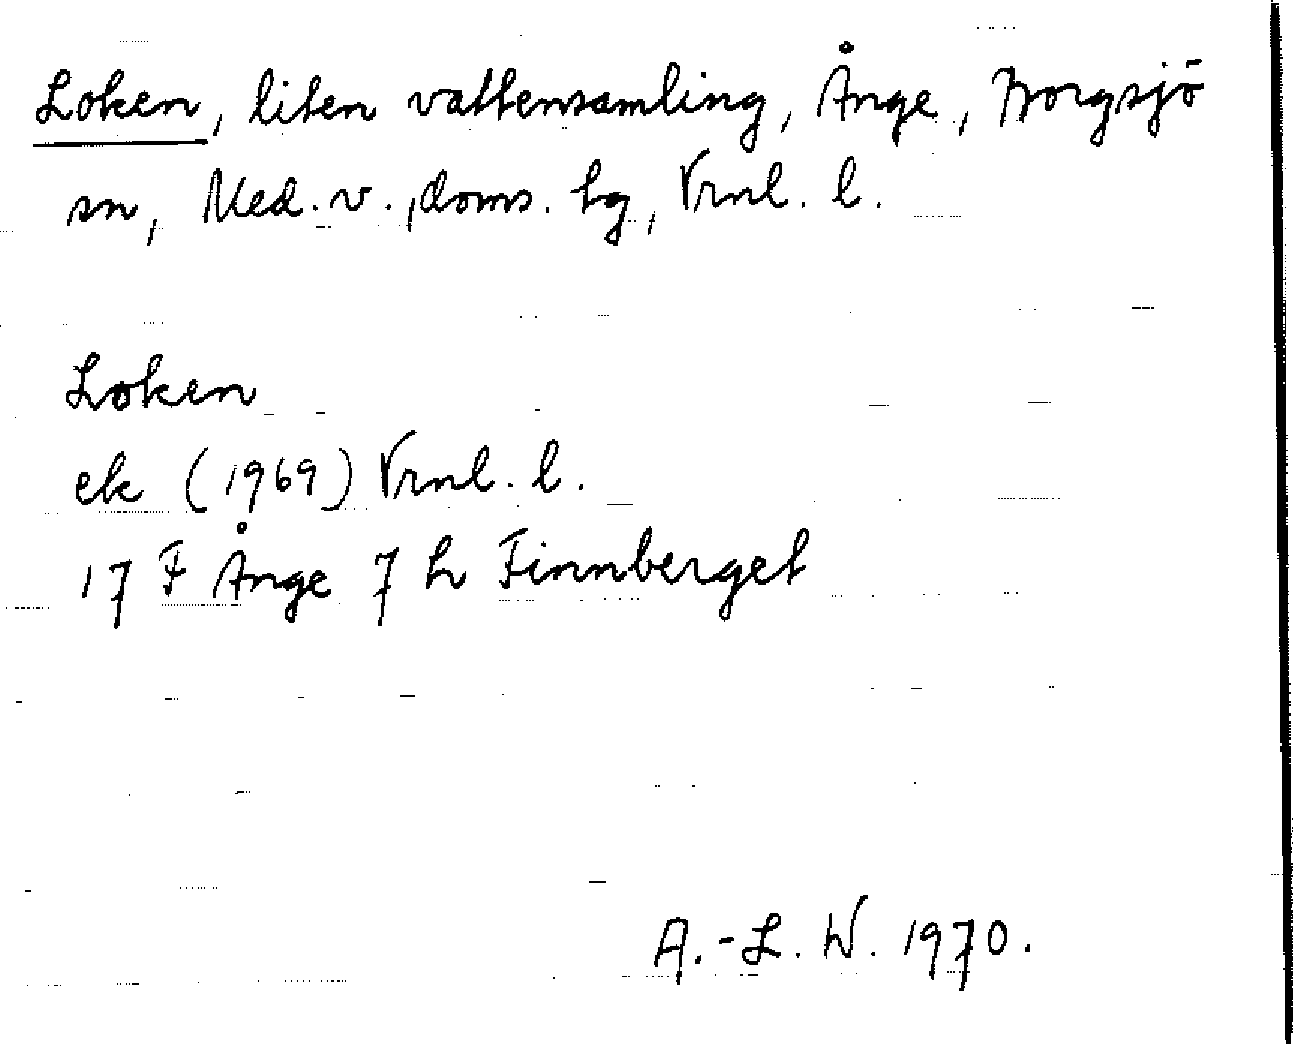 Loken, liten vattensamling, Ånge, Borgsjö
sn, Med. v., doms. hg, Vrnl. l.
Loken
ek (1969) Vrnl. l.
17 F Ånge 7 h Finnberget
A.-L. W. 1970.